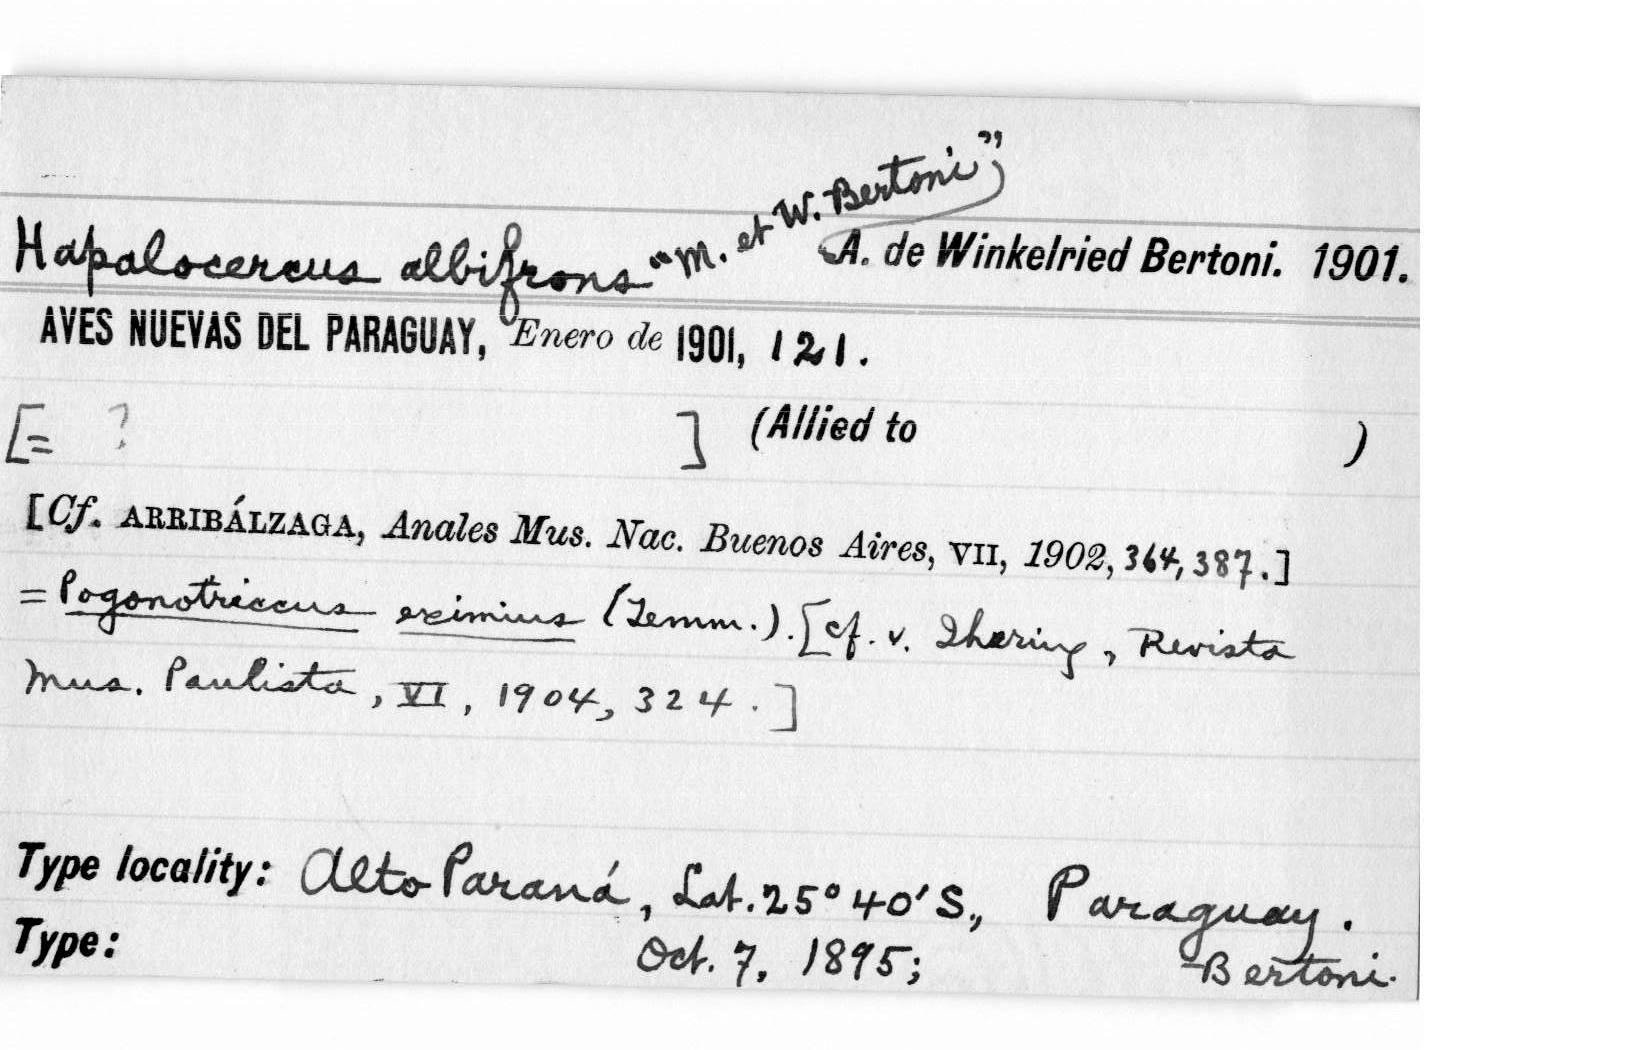 Hapalocercus albifrons "M. et W. Bertoni", A. de Winkelried Bertoni. 1901.
AVES NUEVAS DEL PARAGUAY, Enero de 1901, 121.
[= ? ] (Allied to )
[Cf. ARRIBÁLZAGA, Anales Mus. Nac. Buenos Aires, VII, 1902, 364, 387.]
= Pogonotriccus eximius (Temm.). [cf. v. Ihering, Revista
Mus. Paulista, VI, 1904, 324.]
Type locality: Alto Paraná, Lat. 25° 40' S., Paraguay.
Type: Oct. 7, 1895; Bertoni.